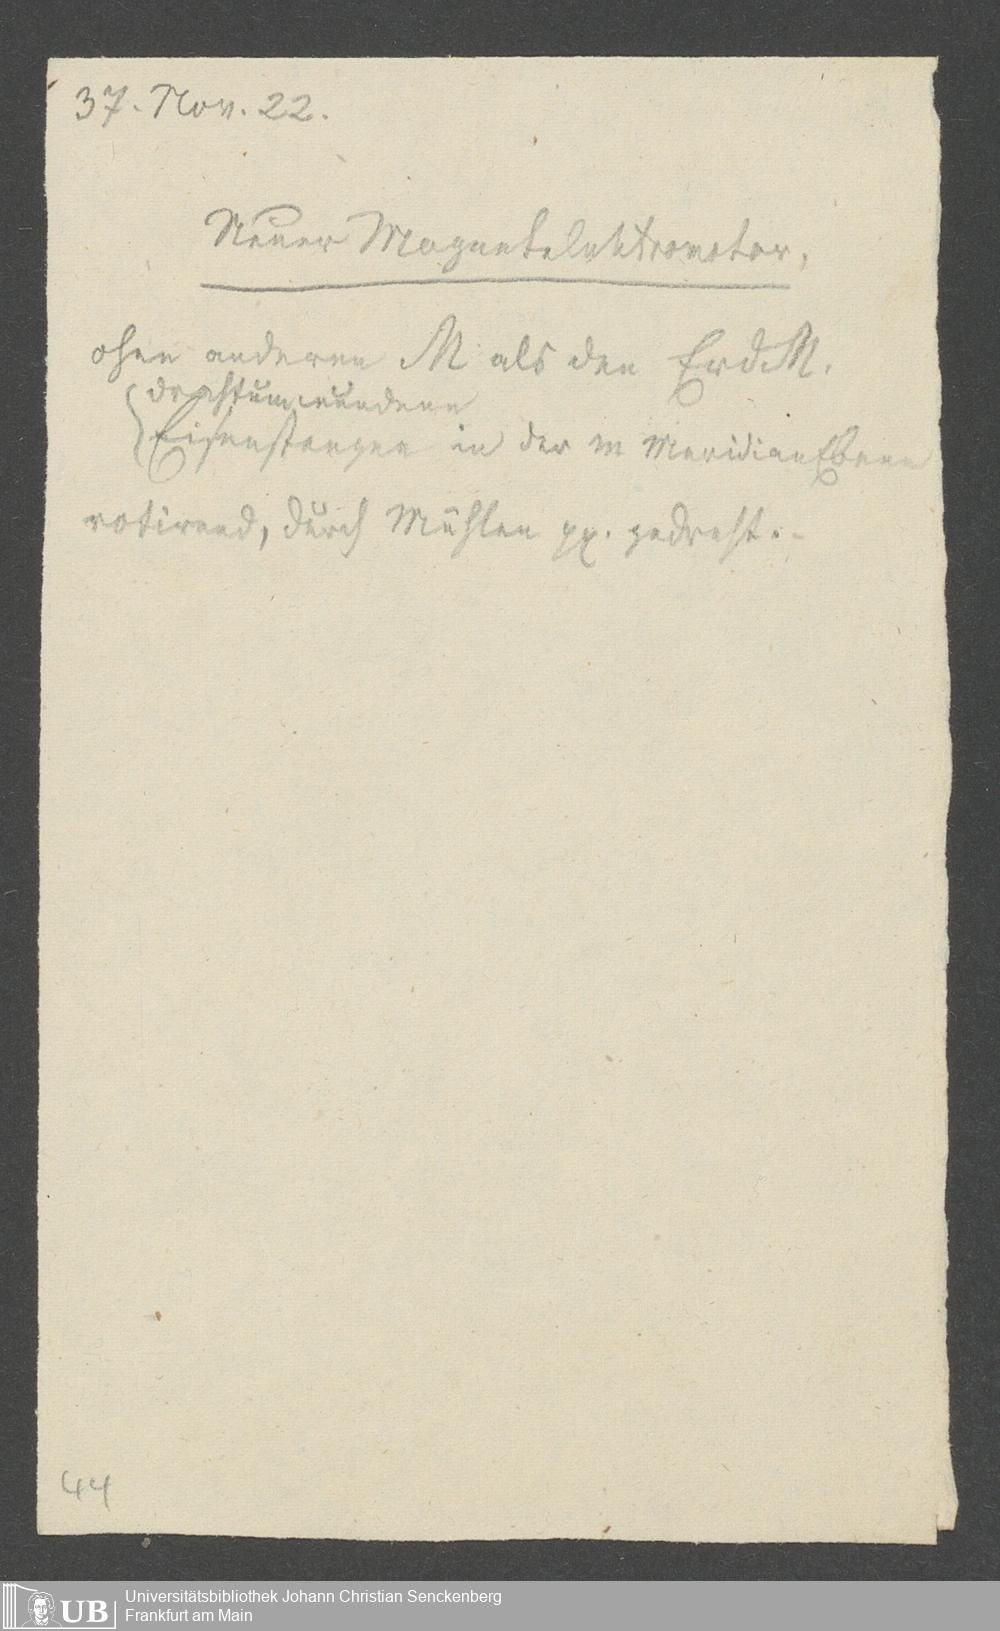 37. Nov. 22.
Neuer Magnetelektromotor,
ohne anderen M als den ErdM.
drahtumwundene
Eisenstangen in der m MeridianEbene
rotirend, durch Mühlen pp. gedreht.-
44
UB
Universitätsbibliothek Johann Christian Senckenberg
Frankfurt am Main